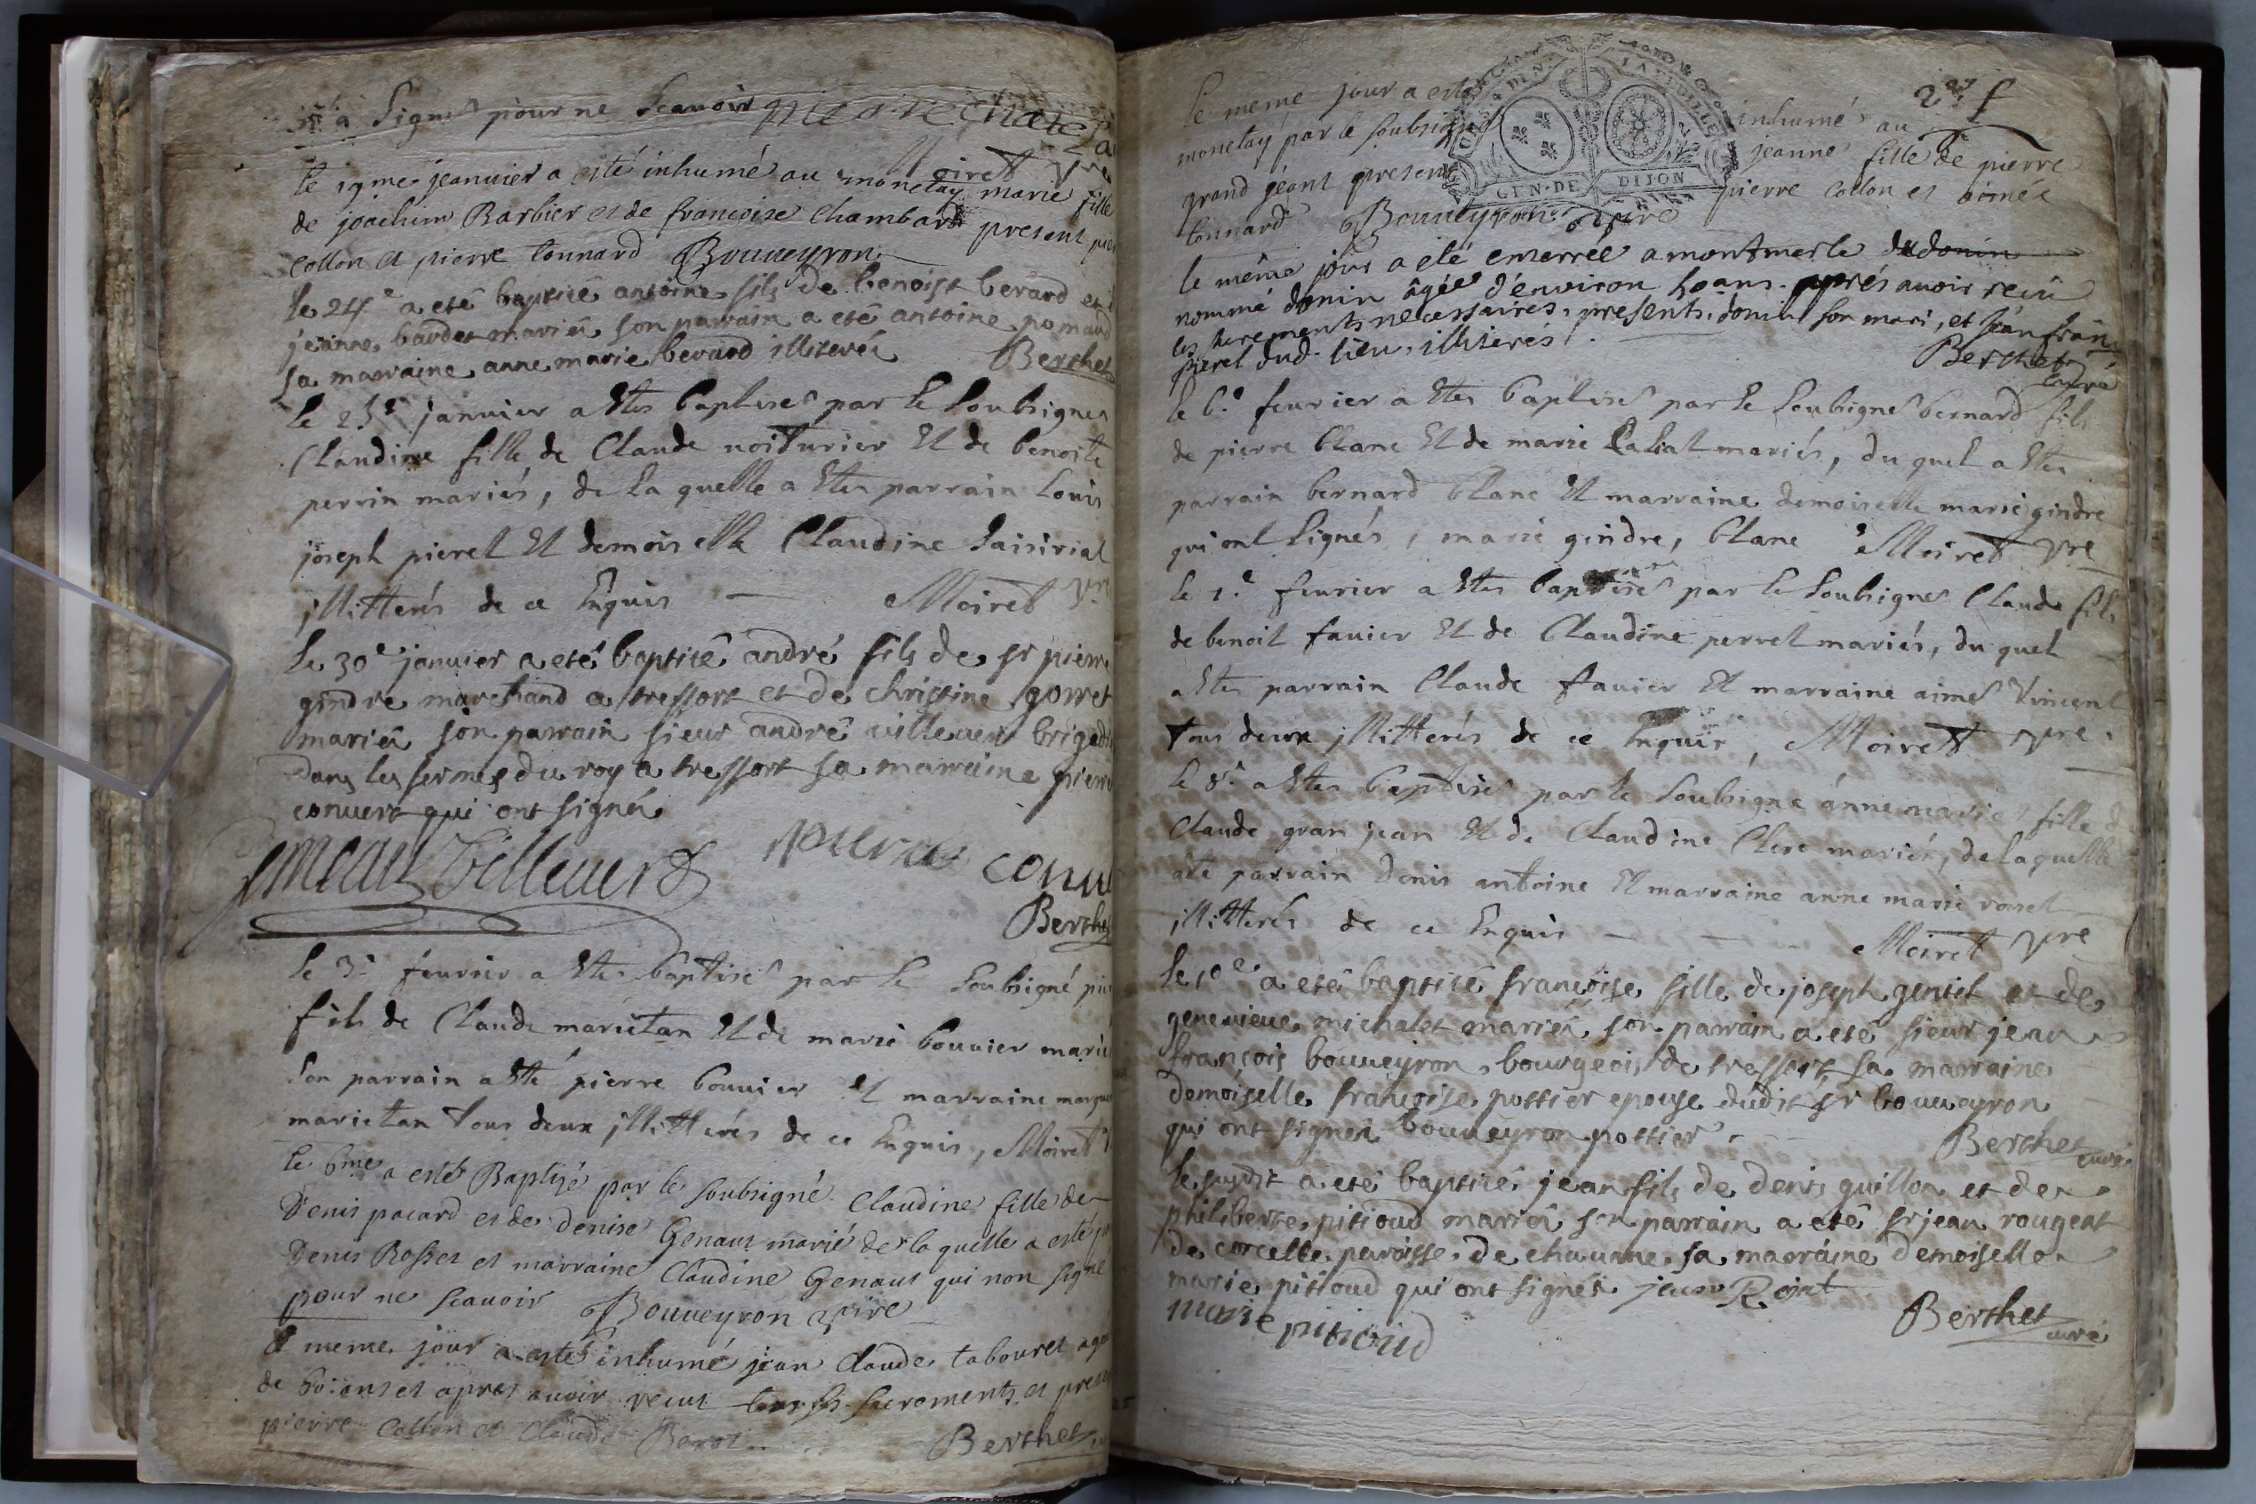 a signé pour ne scauoir
Moiret vre
le 19me jeanuier a esté inhumé au monetay marie fille
de joachim Barbier et de francoise Chambard present
collon et pierre tonnard Bouueyron
le 24e a eté baptisé antoine fils de benoist berard et
jeanne bardet mariés son parrain a eté antoine
sa marraine anne marie berard illiterés Berthet
le 25e januier a Etes baptisés par le soubsignes
Claudine fille de Claude uoiturier Et de benoite
perrin mariés, de la quelle a Etes parrain Louis
joseph pierel Et demoiselle Claudine
illitterés de ce Enquis — Moiret vre
le 30e januier a eté baptisé andré fils de sr pierre
gindre marchand a treffort et de christine gorret
mariés son parrain sieur andré uilleuert
dans les fermes du roy a treffort sa marraine pierre
conuert qui ont signés
Villeuert pierre
Berthet
le 3e feurier a Etes baptisé par le soubsigné
fils de Claude marietan Et de marie bouuier
son parrain a Eté pierre bouuier Et marraine
marietan tous deux illitterés de ce Enquis, Moiret
le 6me a esté Baptizé par le soubsigné Claudine fille de
Denis pacard et de denise Genaut marié de laquelle a esté
Denis Rosset et marraine Claudine Genaut qui non signé
pour ne scauoir Bouueyron vire
le meme jour a esté inhumé jean Claude tabouret
de ans et apres auoir recut sacrements et
pierre collon et Claude Berthet
227 f
le meme jour a esté inhumé au
monetay par le soubsigné jeanne fille de pierre
grand jéant present pierre collon et aimée
tonnard Bouueyron vire
GEN · DE DIJON
le même jour a eté enterrée a montmerle
nommé donin âgée d'enuiron ans aprés auoir reçû
les sacrements necessaires, presents donin son mari, et
pierel dud. lieu illiterés.
Berthet curé
le 6e feurier a Etes baptisé par le soubsigné bernard fils
de pierre blanc Et de marie mariés, du quel a Etes
parrain bernard blanc Et marraine demoiselle marie gindre
qui ont signés, marie gindre, blanc Moiret vre
le feurier a Etes baptisé par le soubsignés Claude fils
de benoit fauier Et de Claudine perret mariés, du quel
a Etes parrain Claude fauier Et marraine aimé Vincent
tous deux illitterés de ce Enquis, Moiret vre
le 8e a Etes baptisés par le soubsigné anne marie fille
Claude gran jean Et de Claudine Clere mariés, de laquelle
parrain denis antoine Et marraine anne marie
illitterés de ce Enquis — — — Moiret vre
le 10e a eté baptisé françoise fille de joseph gentet et de
geneuieue michalet mariés son parrain a eté sieur jean
françois bouueyron bourgeois de treffort sa marraine
demoiselle françoise pottier epouse dudit sr bouueyron
qui ont signés bouueyron pottier
Berthet curé
le susdit a eté baptisé jean fils de denis guillon et de
philiberte pitioud mariés son parrain a eté sr jean rougeat
de corcelle paroisse de chauanne sa marraine demoiselle
marie pitioud qui ont signés jean
marie pitioud Berthet curé